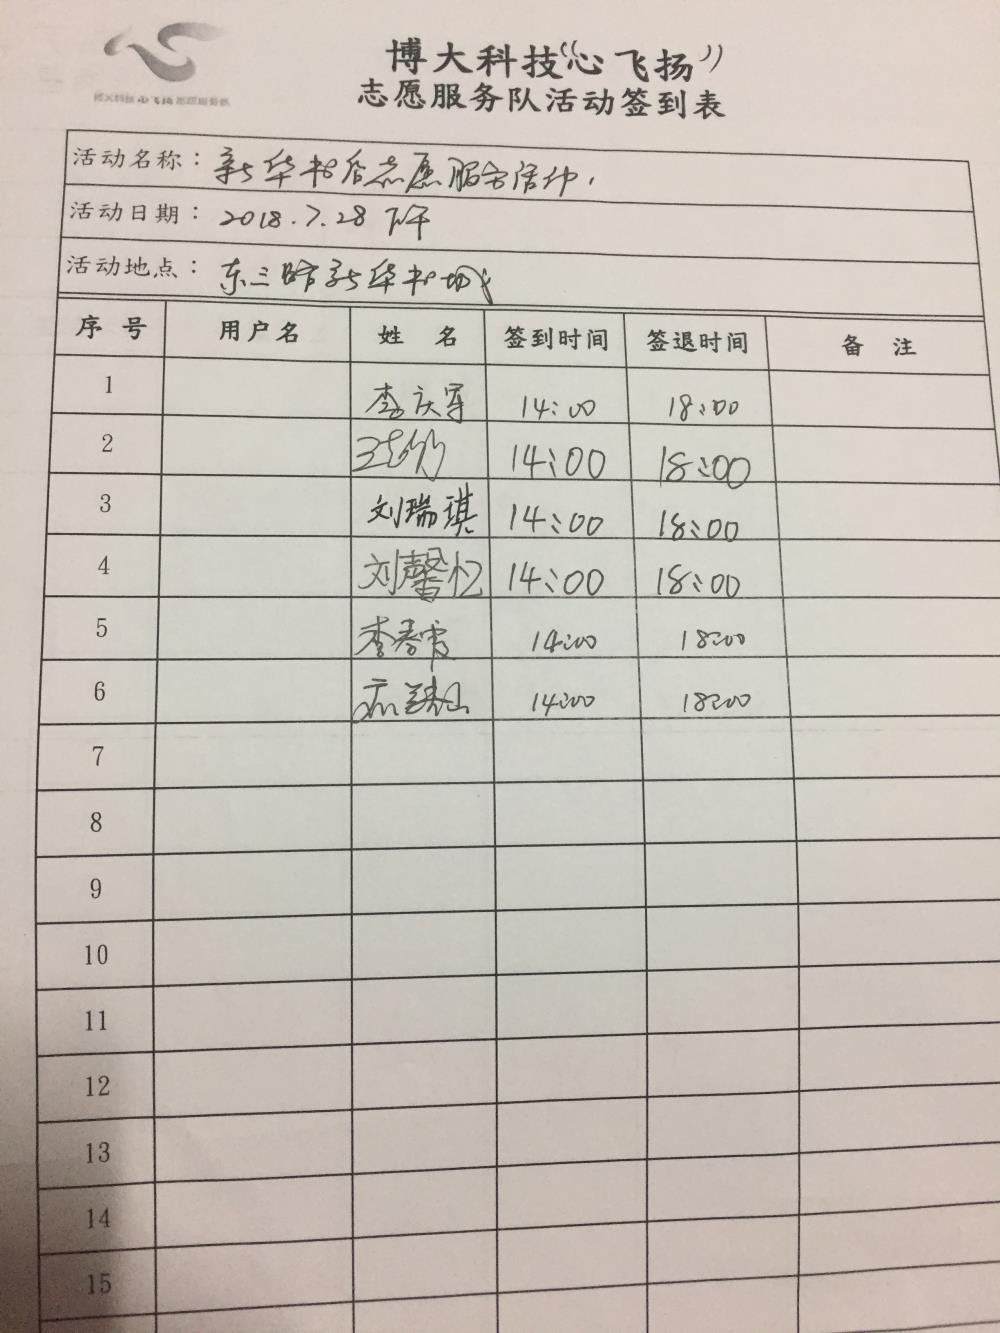 博大科技“心飞扬”
志愿服务队活动签到表
博大科技 心飞扬 志愿服务队
活动名称：新华书店志愿服务活动.
活动日期：2018.7.28 下午
活动地点：东三路新华书城
序号 用户名 姓名 签到时间 签退时间 备注
1 李庆军 14:00 18:00
2 14:00 18:00
3 刘瑞琪 14:00 18:00
4 刘馨忆 14:00 18:00
5 李春霞 14:00 18:00
6 14:00 18:00
7
8
9
10
11
12
13
14
15